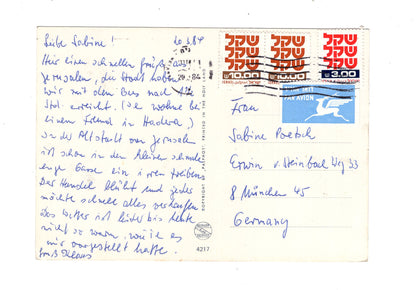 Liebe Sabine! 20.3.84
Hier einen schnellen Gruß aus
Jerusalem, die Stadt haben
wir mit dem Bus nach 1½
Std. erreicht. (Ich wohne bei
einem Freund in Hadera)
In der Altstadt von Jerusalem
ist schon in den kleinen schmalen
enge Gassen ein irres Treiben
Der Handel blüht und jeder
möchte schnell alles verkaufen
Das Wetter ist leider bis heute
nicht so warm, wie ich es
mir vorgestellt hatte.
Gruß Klaus
20.
84
COPYRIGHT
PALPHOT
PRINTED IN THE HOLY LAND
4217
שקל
10.00
שקל
10.00
שקל
3.00
PAR AVION
Frau
Sabine Poetsch
Erwin v. Steinbach Weg 33
8 München 45
Germany